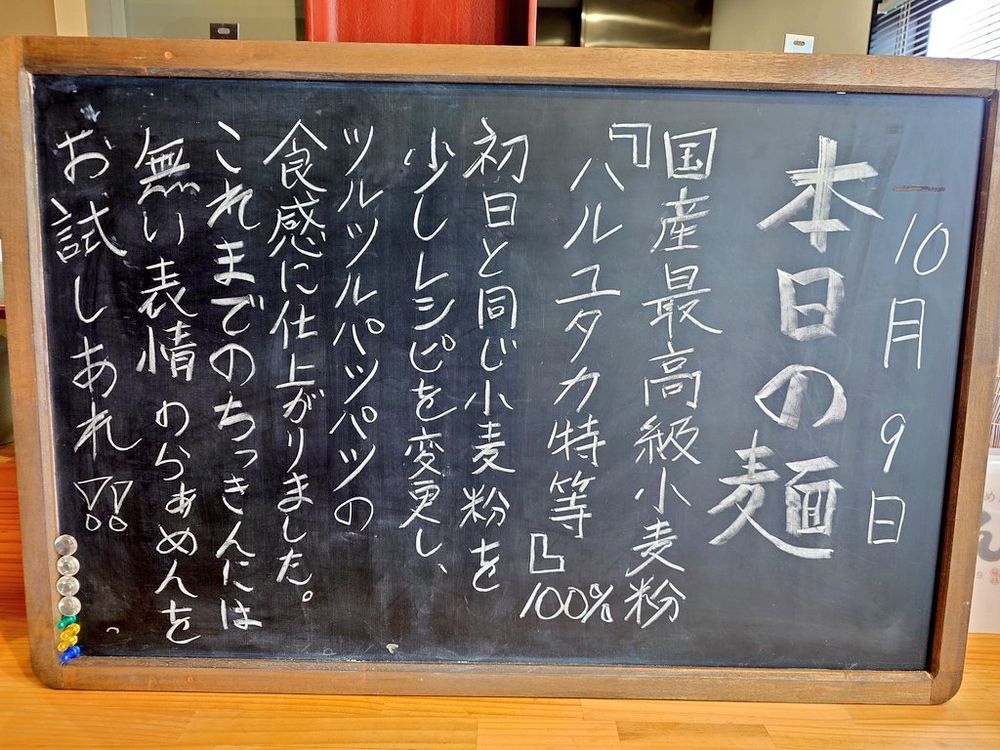 10月9日
本日の麺
国産最高級小麦粉
『ハルユタカ特等』100%
初日と同じ小麦粉を
少しレシピを変更し、
ツルツルパツパツの
食感に仕上がりました。
これまでのちっきんには
無い表情のらぁめんを
お試しあれ!!